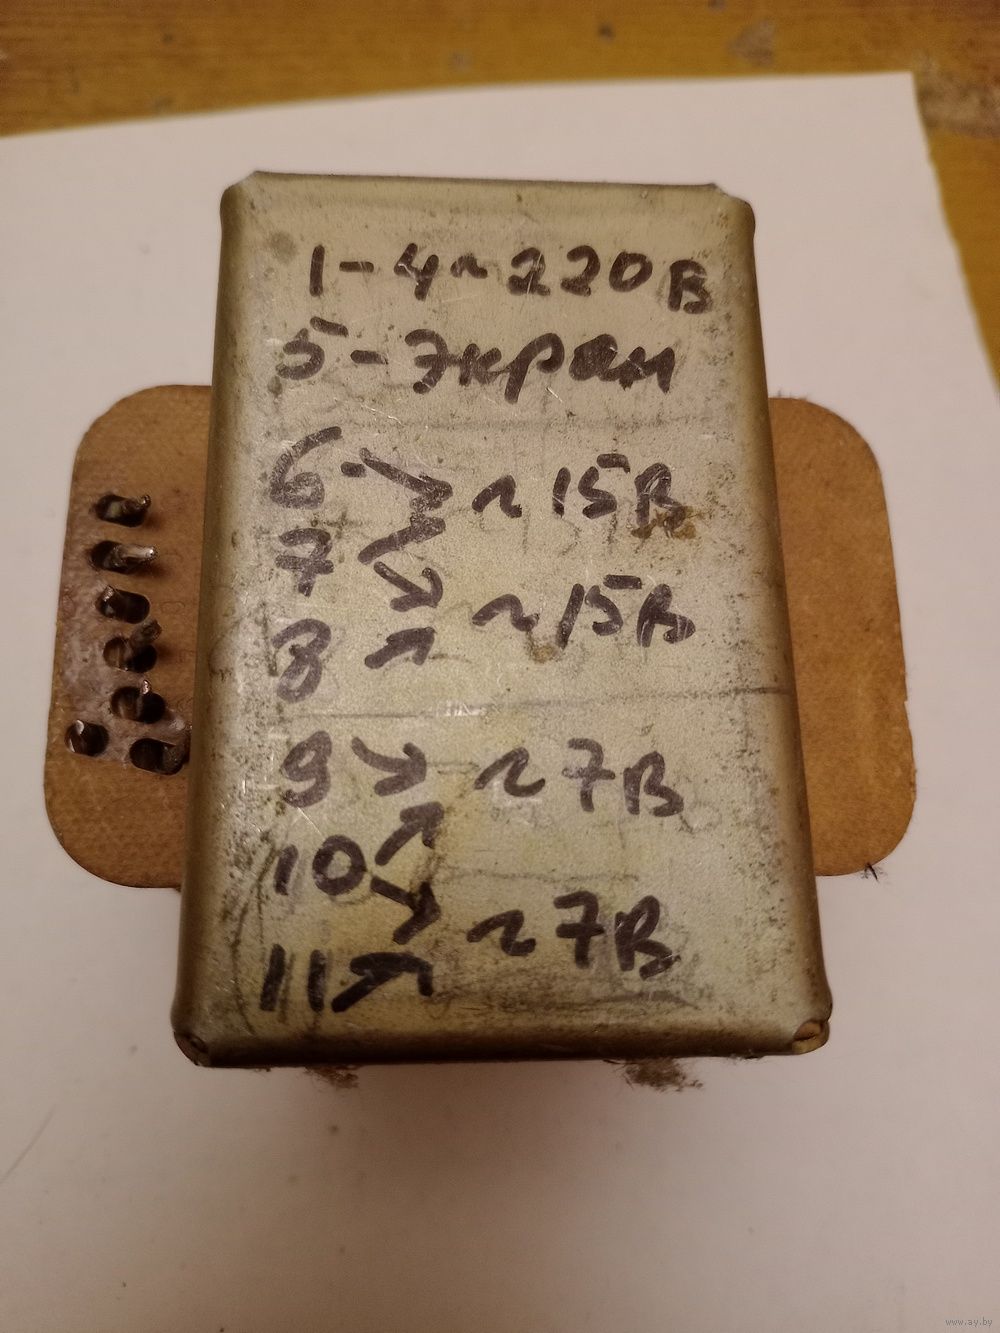 1-4~220В
5-Экран
6
~15В
7
~15В
8
9 ~7В
10
~7В
11
www.ay.by